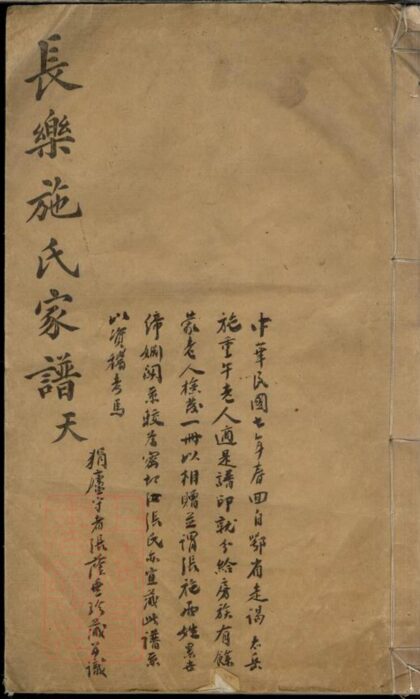 長樂施氏家譜 天
中華民國七年春回自鄂省走謁太岳
施重午老人適是譜印就分給房族有餘
蒙老人檢一冊以相贈並謂張施兩姓累世
締姻關系較為密切汝張氏亦宜藏此譜系
以資稽考焉
狷廬守者張蔭珍藏并識